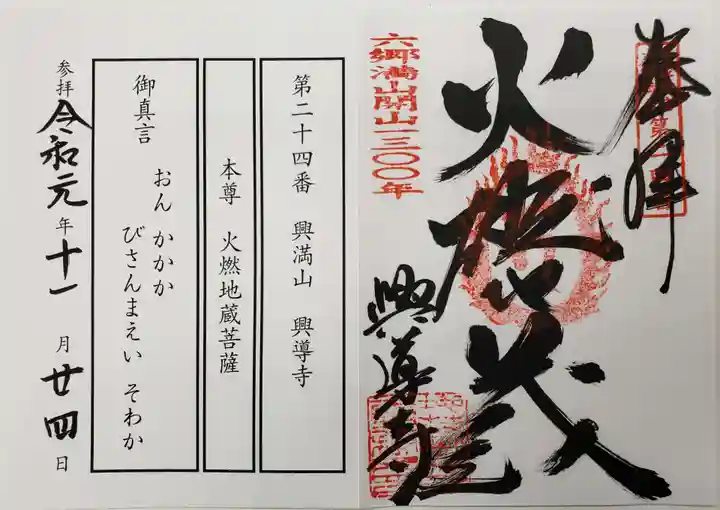 奉拝
火燃地蔵
興導寺
六郷満山開山一三〇〇年
第二十四番 興満山 興導寺
本尊 火燃地蔵菩薩
御真言
おん かかか
びさんまえい そわか
参拝 令和元年十一月廿四日